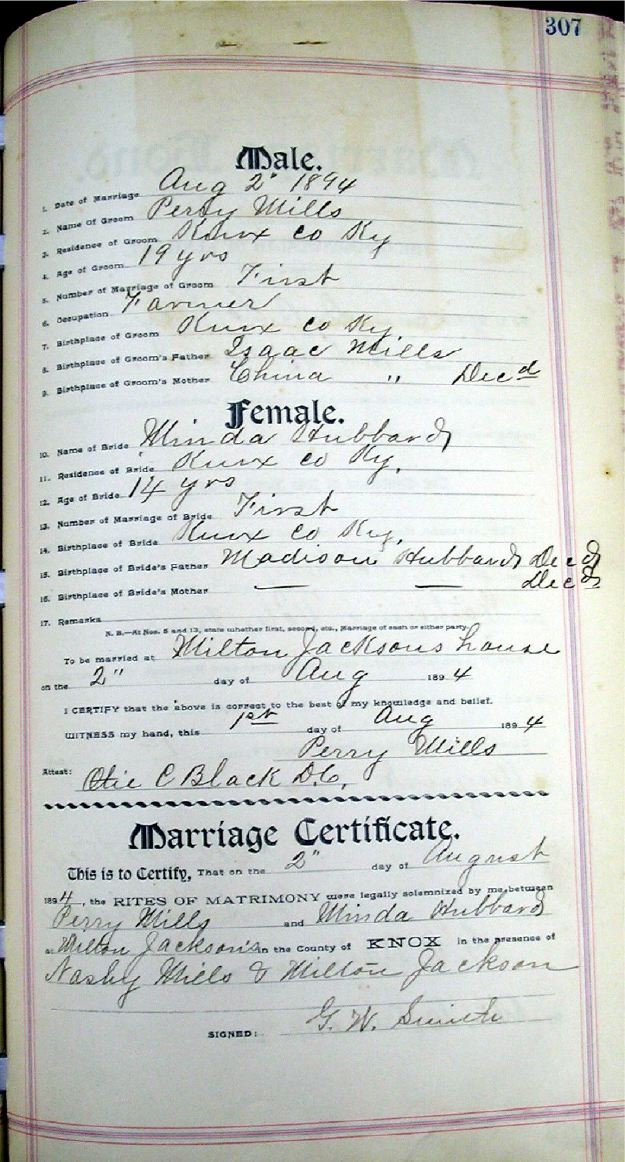 307
Male.
1. Date of Marriage Aug 2" 1894
2. Name Of Groom Perry Mills
3. Residence of Groom Knox co Ky
4. Age of Groom 19 yrs
5. Number of Marriage of Groom First
6. Occupation Farmer
7. Birthplace of Groom Knox co Ky
8. Birthplace of Groom's Father Isaac Mills
9. Birthplace of Groom's Mother China " Decd
Female.
10. Name of Bride Minda Hubbard
11. Residence of Bride Knox co Ky.
12. Age of Bride 14 yrs
13. Number of Marriage of Bride First
14. Birthplace of Bride Knox co Ky.
15. Birthplace of Bride's Father Madison Hubbard Decd
16. Birthplace of Bride's Mother — — Decd
17. Remarks
N. B.—At Nos. 5 and 13, state whether first, second, etc., Marriage of each or either party.
To be married at Milton Jacksons house
on the 2" day of Aug 1894
I CERTIFY that the above is correct to the best of my knowledge and belief.
WITNESS my hand, this 1st day of Aug 1894
Perry Mills
Attest: Otie C Black D.C.
Marriage Certificate.
This is to Certify, That on the 2" day of August
1894, the RITES OF MATRIMONY were legally solemnized by me, between
Perry Mills and Minda Hubbard
at Milton Jackson's in the County of KNOX in the presence of
Nasby Mills & Milton Jackson
SIGNED: G. W. Smith